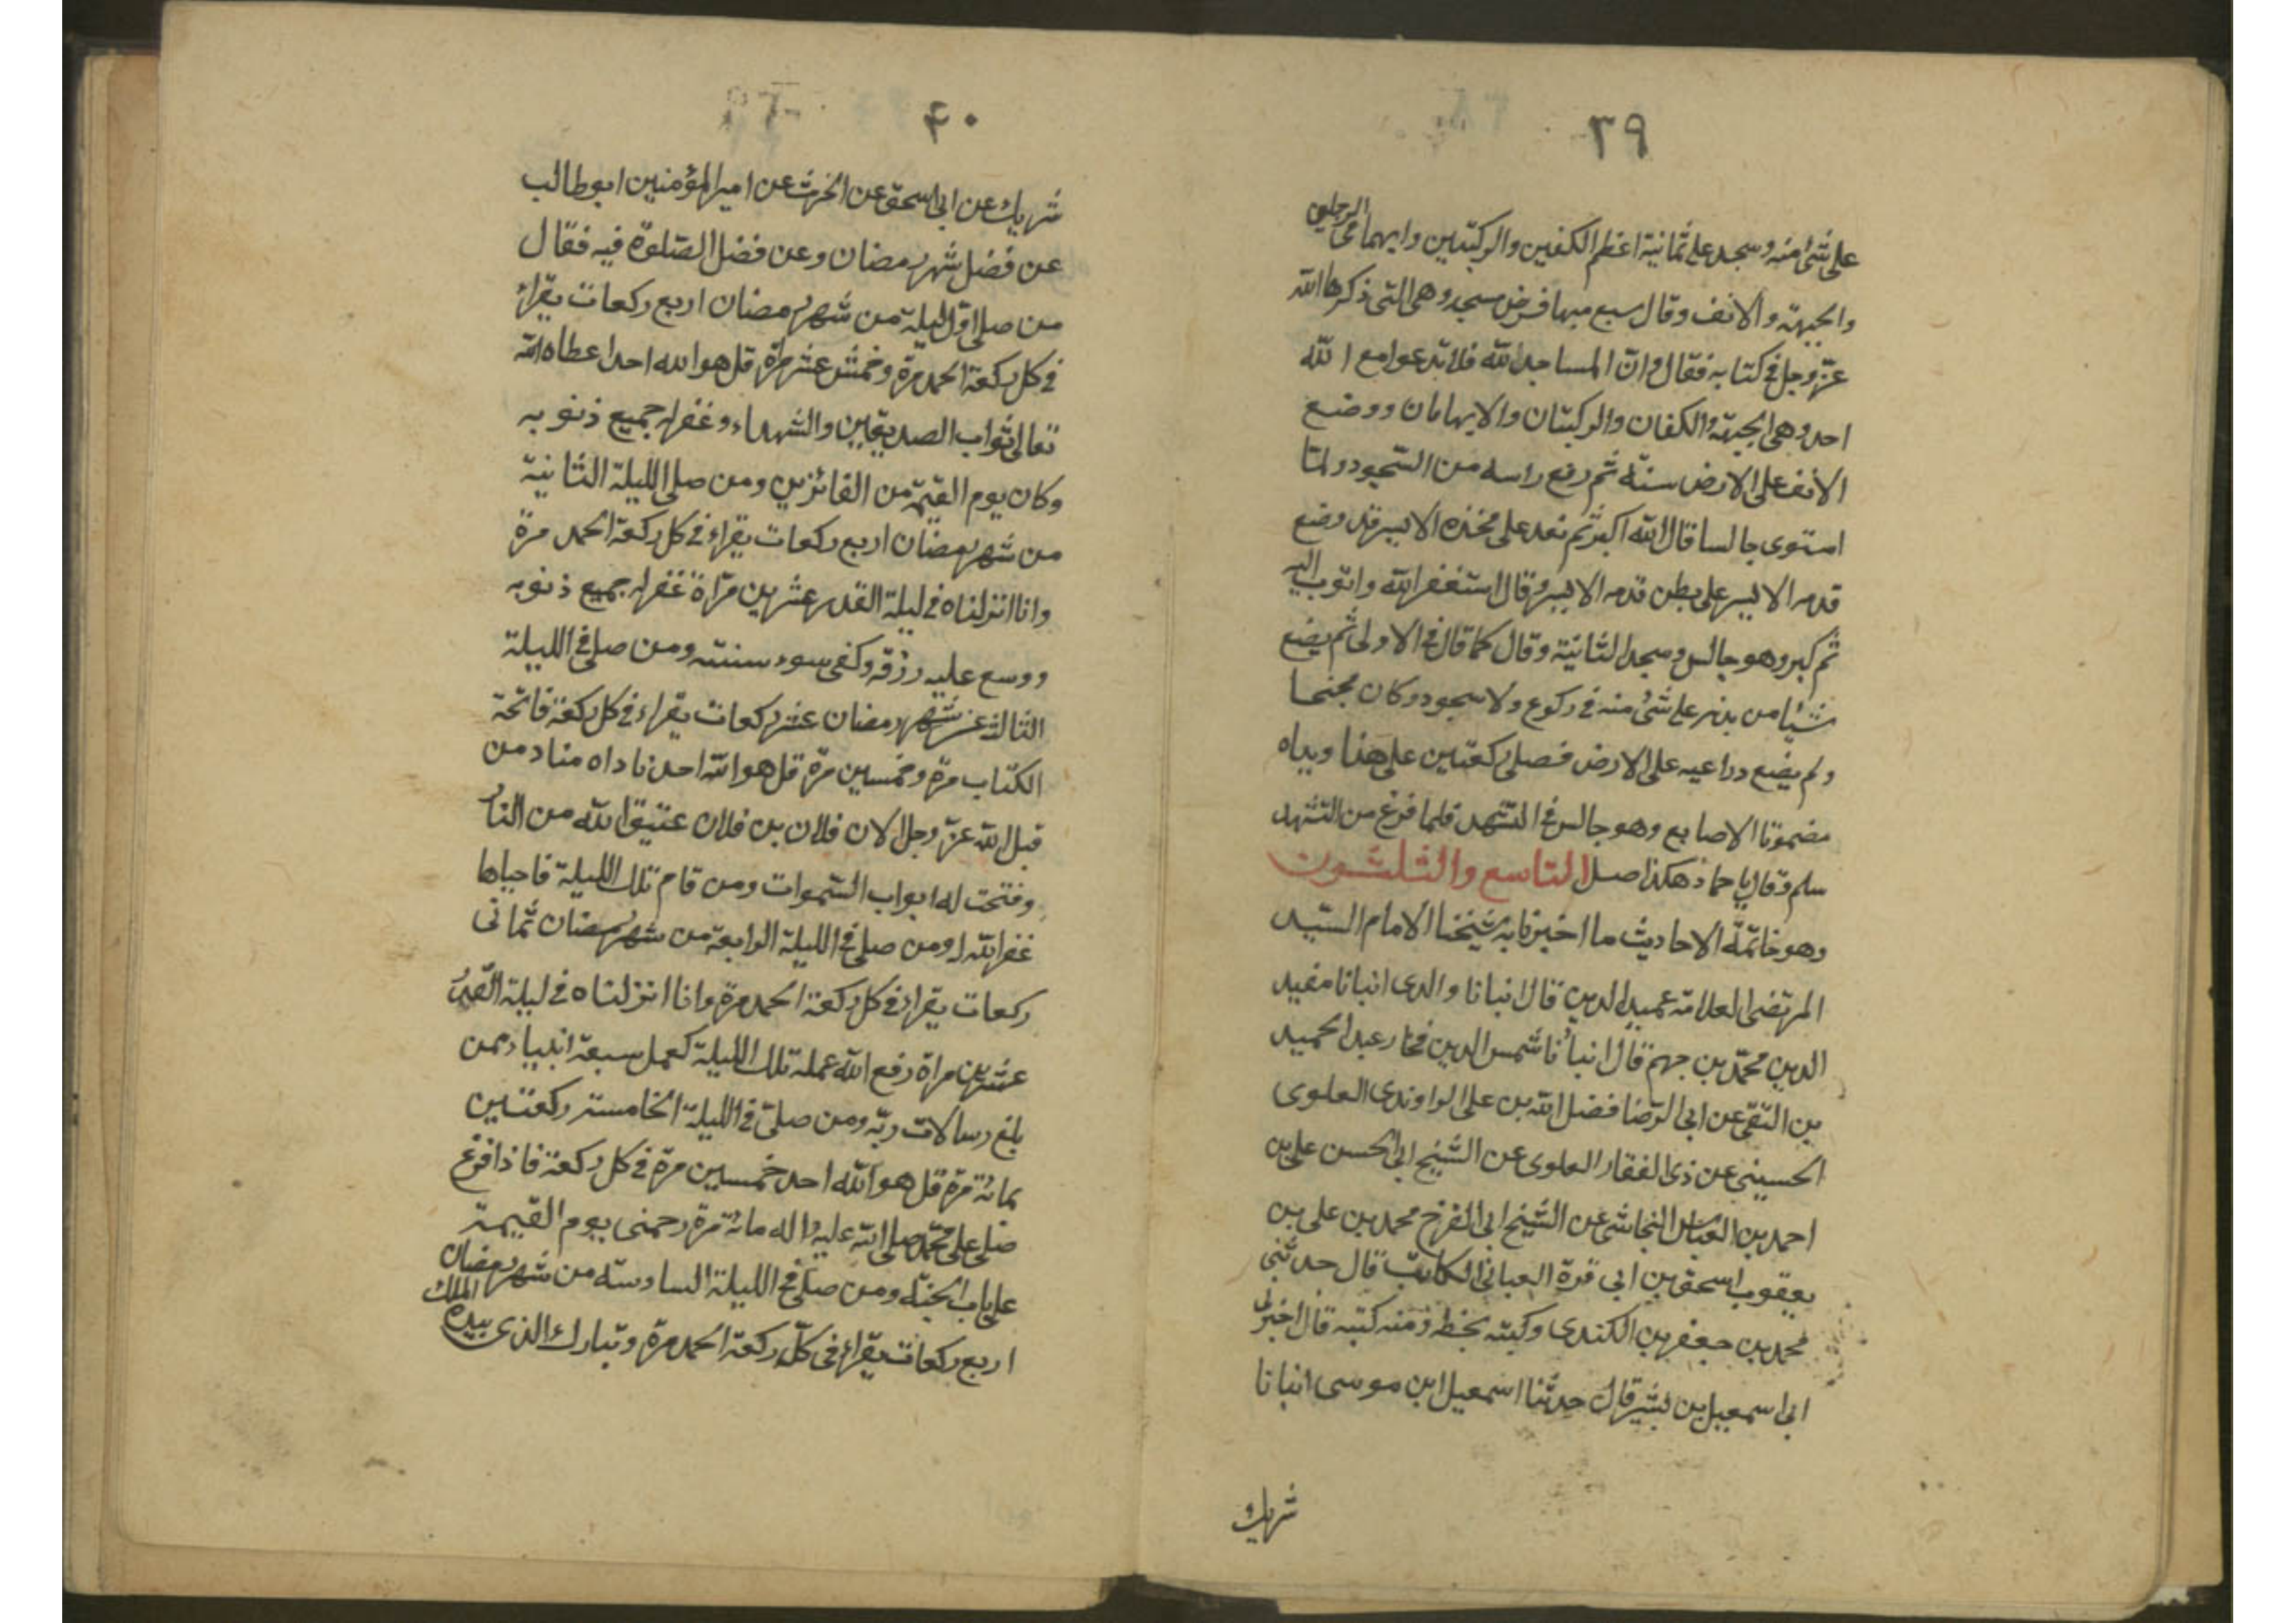 ٣٩
على شئ منه وسجد على ثمانية اعظم الكفين والركبتين وابهامى الرجلين
والجبهة والانف وقال سبع منها فرض يسجد وهى التى ذكرها الله
عزّ وجل فى كتابه فقال وانّ المساجد لله فلا تدعوا مع الله
احد وهى الجبهة والكفان والركبتان والابهامان ووضع
الانف على الارض سنّة ثم رفع راسه من السّجود ولمّا
استوى جالسا قال الله اكبر ثم قعد على فخذه الايسر قد وضع
قدمه الايسر على بطن قدمه الايسر وقال استغفر الله واتوب اليه
ثم كبر وهو جالس وسجد الثانية وقال كما قال فى الاولى ثم يضع
شيئا من بدنه على شئ منه فى ركوع ولا سجود وكان مجنحا
ولم يضع دراعيه على الارض فصلى ركعتين على هذا ويداه
مضمومتا الاصابع وهو جالس فى التشهد فلما فرغ من التشهد
سلم وقال يا حماد هكذا صل التاسع والثلثون
وهو خاتمة الاحاديث ما اخبرنا به شيخنا الامام السّيد
المرتضى العلامة عميد الدين قال انبانا والدى انبانا مفيد
الدين محمّد بن جهم قال انبأنا شمس الدين فخار عبد الحميد
بن التقى عن ابى الرّضا فضل الله بن على الراوندى العلوى
الحسينى عن ذى الفقار العلوى عن الشيخ ابى الحسن على بن
احمد بن العباس النجاشى عن الشيخ ابى الفرج محمد بن على بن
يعقوب اسحق بن ابى قرة العبانى الكاتب قال حدثنى
محمد بن جعفر بن الكندى وكتبته بخطه ومنه كتبه قال اخبرنى
ابى اسمعيل بن بشير قال حدثنا اسمعيل ابن موسى انبانا
شريك
٤٠
شريك عن ابى اسحق عن الحرث عن امير المؤمنين ابو طالب
عن فضل شهر رمضان وعن فضل الصّلوة فيه فقال
من صلى اوّل ليلة من شهر رمضان اربع ركعات يقراء
فى كل ركعة الحمد مرة وخمس عشر مرة قل هو الله احد اعطاه الله
تعالى ثواب الصديقين والشهداء وغفر له جميع ذنوبه
وكان يوم القيمة من الفائزين ومن صلى الليلة الثانية
من شهر رمضان اربع ركعات يقراء فى كل ركعة الحمد مرة
وانا انزلناه فى ليلة القدر عشرين مرّة غفر له جميع ذنوبه
ووسع عليه رزقه وكفى سوء سنته ومن صلى فى الليلة
الثالثة من شهر رمضان عشر ركعات يقراء فى كل ركعة فاتحة
الكتاب مرة وخمسين مرة قل هو الله احد ناداه مناد من
قبل الله عزّ وجل الا ان فلان بن فلان عتيق الله من النار
وفتحت له ابواب السّموات ومن قام تلك الليلة فاحياها
غفر الله له ومن صلى فى الليلة الرابعة من شهر رمضان ثمانى
ركعات يقراء فى كل ركعة الحمد مرة وانا انزلناه فى ليلة القدر
عشرين مراة رفع الله عمله تلك الليلة كعمل سبعة انبياء ممن
بلغ رسالات ربّه ومن صلىّ فى الليلة الخامسة ركعتين
بمائة مرة قل هو الله احد خمسين مرة فى كل ركعة فاذا فرغ
صلى على محمّد صلى الله عليه واله مائة مرة زحمنى يوم القيمة
على باب الجنّة ومن صلى فى الليلة السادسة من شهر رمضان
اربع ركعات يقراء فى كلّ ركعة الحمد مرة وتبارك الذى بيده الملك